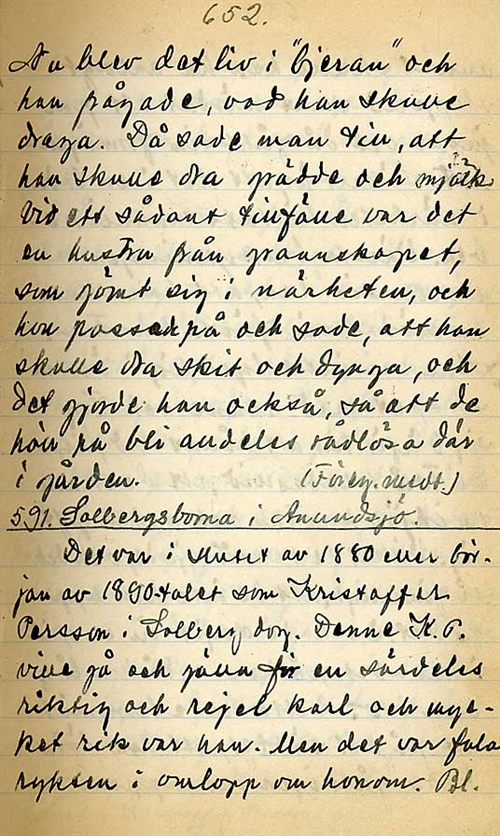 652.
Nu blev det liv i "bjeran" och
han frågade, vad han skulle
draga. Då sade man till, att
han skulle dra grädde och mjölk.
Vid ett sådant tillfälle var det
en hustru från grannskapet,
som gömt sig i närheten, och
hon passade på och sade, att han
skulle dra skit och dynga, och
det gjorde han också, så att de
höll på bli andeles rådlösa där
i gården. (Föreg. medt.)
591. Solbergsborna i Anundsjö.
Det var i slutet av 1880 eller bör-
jan av 1890-talet som Kristoffer
Persson i Solberg dog. Denne K. P.
ville gå och gälla för en särdeles
riktig och rejel karl och myc-
ket rik var han. Men det var fula
rykten i omlopp om honom. Bl.